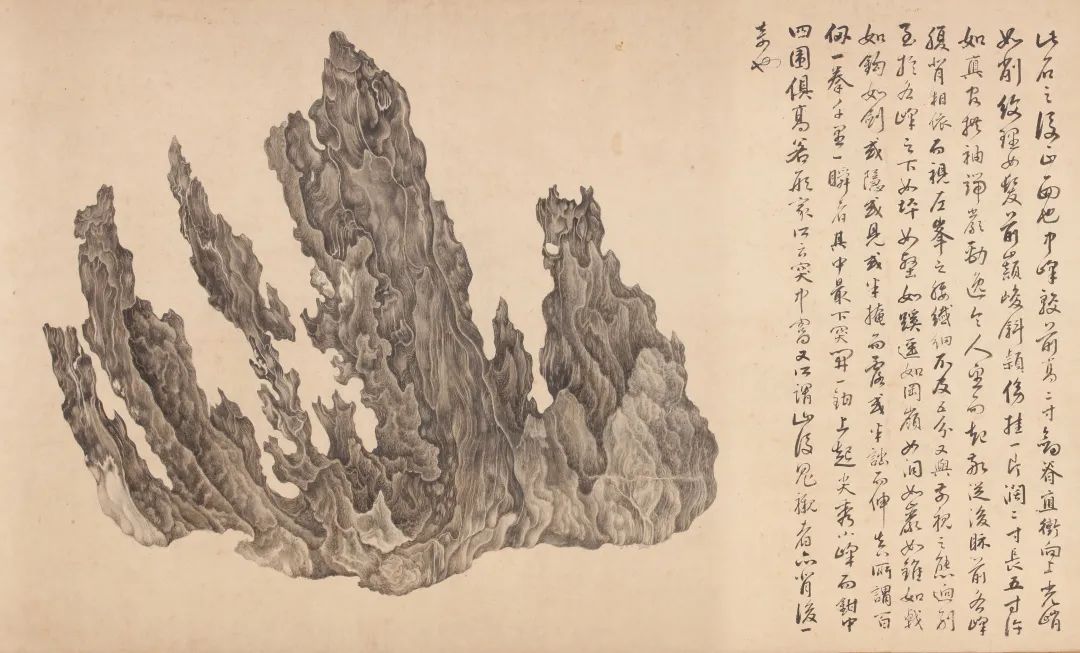 此石之後正面也中峰較前高二寸劍脊直衝向上光峭
如削紋理如髮前巔峻斜顛傍挂一片濶二寸長五寸許
如真官拱袖端嚴勁逸令人望而起敬從後眎前各峰
腹背相依而視左峯之腰纖細不及五分又與前視之態迥別
至於各峰之下如坪如壑如蹊逕如岡嶺如洞如巖如錐如戟
如鈎如劍或隱或見或半掩而露或半詘而伸真所謂百
仞一拳千里一瞬者其中最下突開一鉗上起尖秀小峰而鉗中
四圍俱高若形家所云突中窩又所謂山後鬼襯者亦背後一
奇也